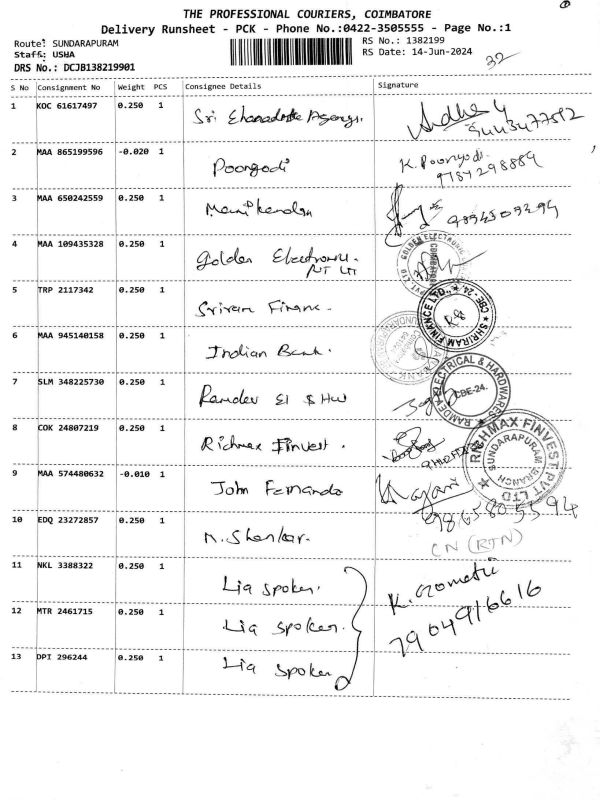 THE PROFESSIONAL COURIERS, COIMBATORE
Delivery Runsheet - PCK - Phone No.:0422-3505555 - Page No.:1
Route: SUNDARAPURAM
RS No.: 1382199
Staff: USHA
RS Date: 14-Jun-2024
DRS No.: DCJB138219901
32
S No Consignment No Weight PCS Consignee Details Signature
1 KOC 61617497 0.250 1 Sri
2 MAA 865199596 -0.020 1 Poongodi K. Poongodi.
9787298889
3 MAA 650242559 0.250 1 Manikandan
4 MAA 109435328 0.250 1 Golden Electronic
PVT LTD
5 TRP 2117342 0.250 1 Sriram Financ.
CBE - 24. ★ SHRIRAM FINANCE LTD., ★
6 MAA 945140158 0.250 1 Indian Bank.
7 SLM 348225730 0.250 1 Ramdev El & HW
RAMDEV ELECTRICAL & HARDWARES
CBE-24.
8 COK 24807219 0.250 1 Richmax Finvest.
RICHMAX FINVEST PVT LTD ★
SUNDARAPURAM BRANCH
9 MAA 574480632 -0.010 1 John Fernando
9865805594
10 EDQ 23272857 0.250 1 N. Shankar.
CN (RTN)
11 NKL 3388322 0.250 1 Lia spoken.
12 MTR 2461715 0.250 1 Lia spoken.
7904916616
13 DPI 296244 0.250 1 Lia spoken